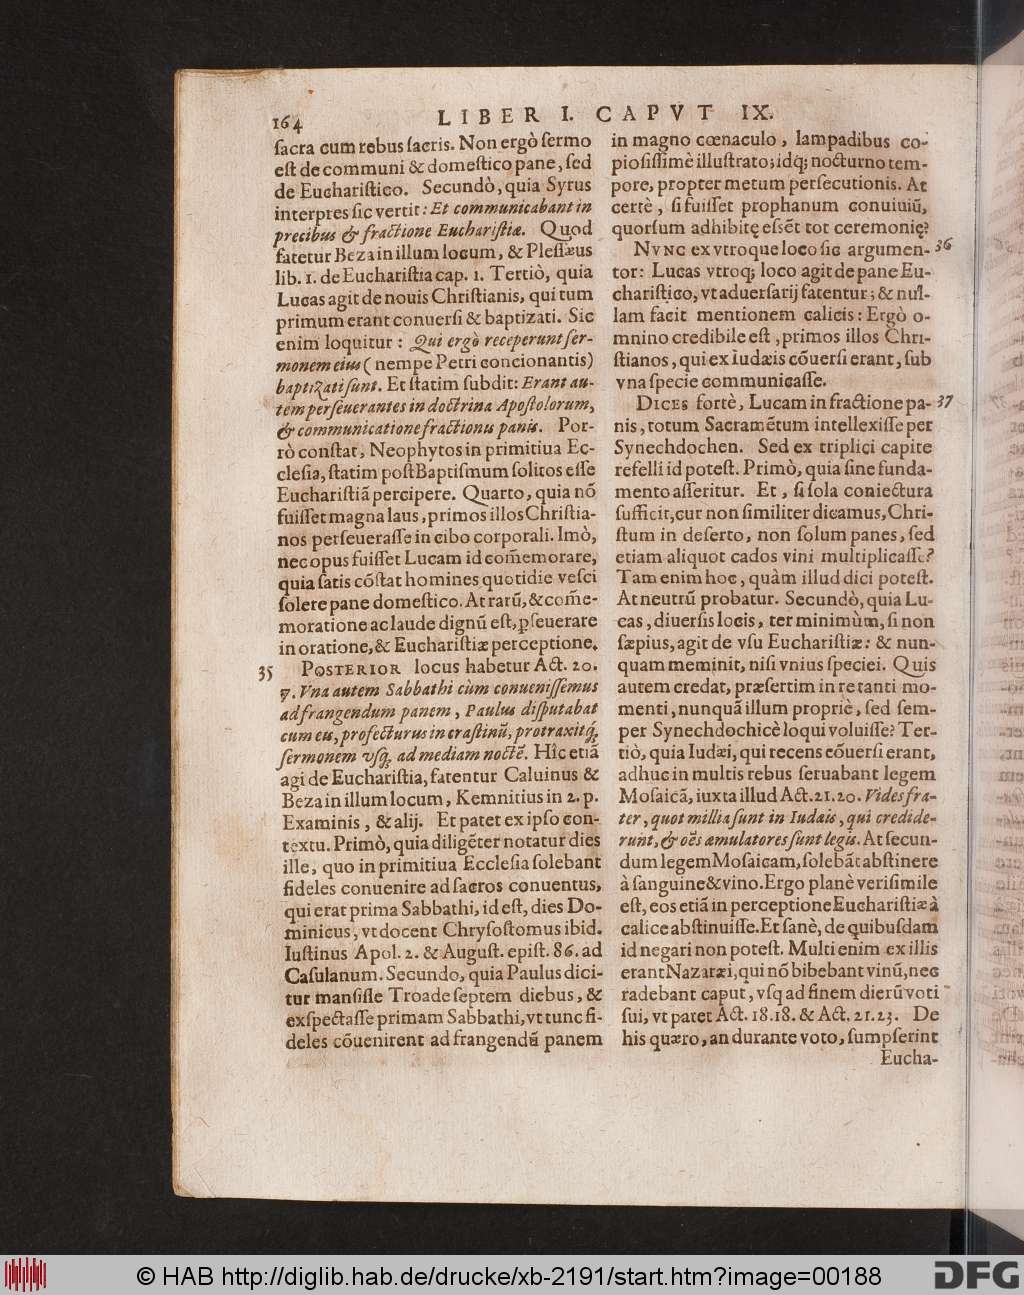 164
LIBER I. CAPVT IX.
ſacra cum rebus ſacris. Non ergò ſermo
eſt de communi & domeſtico pane, ſed
de Euchariſtico. Secundò, quia Syrus
interpres ſic vertit: Et communicabant in
precibus & fractione Euchariſtiæ. Quod
fatetur Beza in illum locum, & Pleſſæus
lib. 1. de Euchariſtia cap. 1. Tertiò, quia
Lucas agit de nouis Chriſtianis, qui tum
primum erant conuerſi & baptizati. Sic
enim loquitur: Qui ergò receperunt ſer-
monem eius (nempe Petri concionantis)
baptizati ſunt. Et ſtatim ſubdit: Erant au-
tem perſeuerantes in doctrina Apoſtolorum,
& communicatione fractionis panis. Por-
rò conſtat, Neophytos in primitiua Ec-
cleſia, ſtatim poſt Baptiſmum ſolitos eſſe
Euchariſtiã percipere. Quarto, quia nõ
fuiſſet magna laus, primos illos Chriſtia-
nos perſeueraſſe in cibo corporali. Imò,
nec opus fuiſſet Lucam id com̃emorare,
quia ſatis cõſtat homines quotidie veſci
ſolere pane domeſtico. At rarũ, & com̃e-
moratione ac laude dignũ eſt, ꝑſeuerare
in oratione, & Euchariſtiæ perceptione.
35 POSTERIOR locus habetur Act. 20.
7. Vna autem Sabbathi cùm conueniſſemus
ad frangendum panem, Paulus diſputabat
cum eis, profecturus in craſtinũ, protraxitq́;
ſermonem vſq; ad mediam noctẽ. Hîc etiã
agi de Euchariſtia, fatentur Caluinus &
Beza in illum locum, Kemnitius in 2. p.
Examinis, & alij. Et patet ex ipſo con-
textu. Primò, quia diligẽter notatur dies
ille, quo in primitiua Eccleſia ſolebant
fideles conuenire ad ſacros conuentus,
qui erat prima Sabbathi, id eſt, dies Do-
minicus, vt docent Chryſoſtomus ibid.
Iuſtinus Apol. 2. & Auguſt. epiſt. 86. ad
Caſulanum. Secundo, quia Paulus dici-
tur manſiſſe Troade ſeptem diebus, &
exſpectaſſe primam Sabbathi, vt tunc fi-
deles cõuenirent ad frangendũ panem
in magno cœnaculo, lampadibus co-
pioſiſſimè illuſtrato; idq; nocturno tem-
pore, propter metum perſecutionis. At
certè, ſi fuiſſet prophanum conuiuiũ,
quorſum adhibitę eſsẽt tot ceremonię?
NVNC ex vtroque loco ſic argumen- 36
tor: Lucas vtroq; loco agit de pane Eu-
chariſtico, vt aduerſarij fatentur; & nul-
lam facit mentionem calicis: Ergò o-
mnino credibile eſt, primos illos Chri-
ſtianos, qui ex Iudæis cõuerſi erant, ſub
vna ſpecie communicaſſe.
DICES fortè, Lucam in fractione pa- 37
nis, totum Sacramẽtum intellexiſſe per
Synechdochen. Sed ex triplici capite
refelli id poteſt. Primò, quia ſine funda-
mento aſſeritur. Et, ſi ſola coniectura
ſufficit, cur non ſimiliter dicamus, Chri-
ſtum in deſerto, non ſolum panes, ſed
etiam aliquot cados vini multiplicaſſe?
Tam enim hoc, quàm illud dici poteſt.
At neutrũ probatur. Secundò, quia Lu-
cas, diuerſis locis, ter minimùm, ſi non
ſæpius, agit de vſu Euchariſtiæ: & nun-
quam meminit, niſi vnius ſpeciei. Quis
autem credat, præſertim in re tanti mo-
menti, nunquã illum propriè, ſed ſem-
per Synechdochicè loqui voluiſſe? Ter-
tiò, quia Iudæi, qui recens cõuerſi erant,
adhuc in multis rebus ſeruabant legem
Moſaicã, iuxta illud Act. 21. 20. Vides fra-
ter, quot millia ſunt in Iudæis, qui credide-
runt, & oẽs æmulatores ſunt legis. At ſecun-
dum legem Moſaicam, ſolebãt abſtinere
à ſanguine & vino. Ergo planè veriſimile
eſt, eos etiã in perceptione Euchariſtiæ à
calice abſtinuiſſe. Et ſanè, de quibuſdam
id negari non poteſt. Multi enim ex illis
erant Nazaræi, qui nõ bibebant vinũ, nec
radebant caput, vſq ad finem dierũ voti
ſui, vt patet Act. 18. 18. & Act. 21. 23. De
his quæro, an durante voto, ſumpſerint
Eucha-
© HAB http://diglib.hab.de/drucke/xb-2191/start.htm?image=00188
DFG